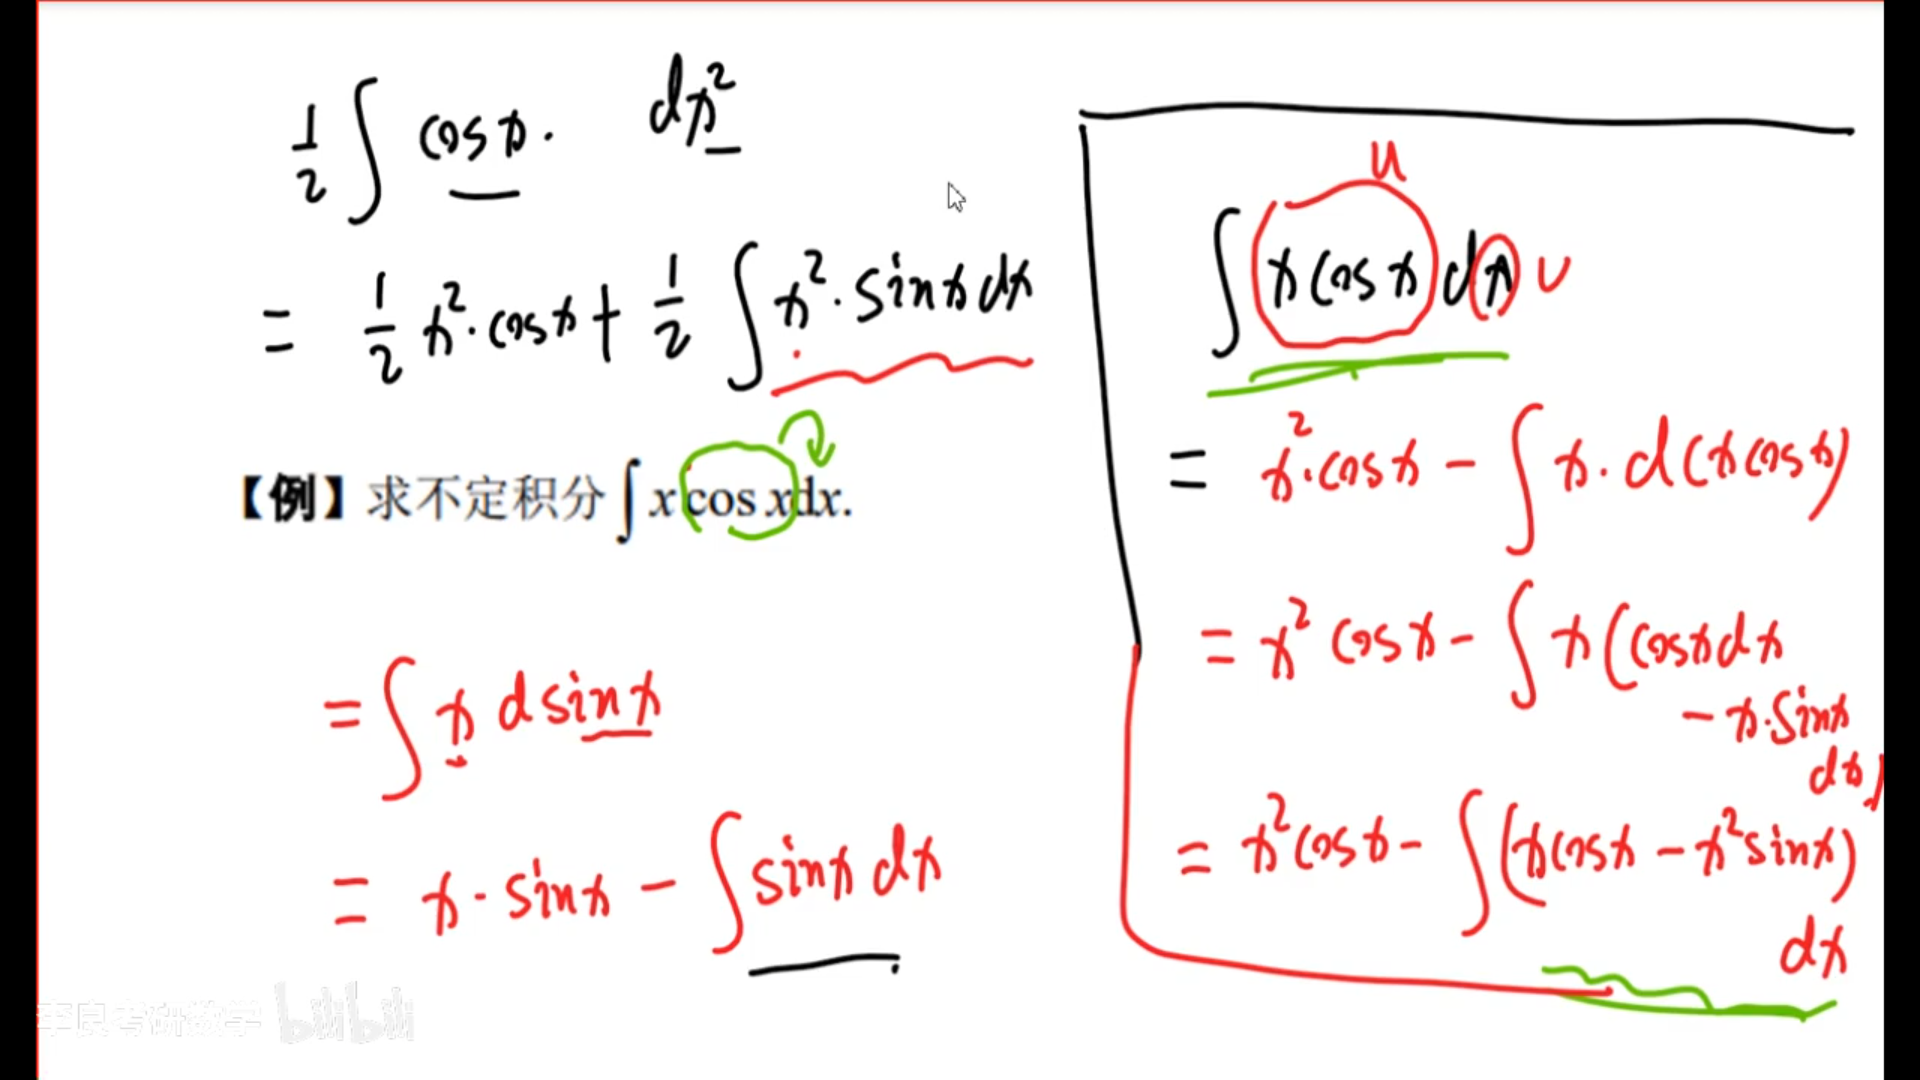 ½∫ cos x · dx²
= ½ x² · cos x + ½ ∫ x² · sin x dx
【例】求不定积分 ∫ x cos x dx.
= ∫ x d sin x
= x · sin x − ∫ sin x dx
u
∫ x cos x dx v
= x² · cos x − ∫ x · d(x cos x)
= x² cos x − ∫ x (cos x dx
− x · sin x
dx)
= x² cos x − ∫ (x cos x − x² sin x)
dx
李良考研数学 bilibili